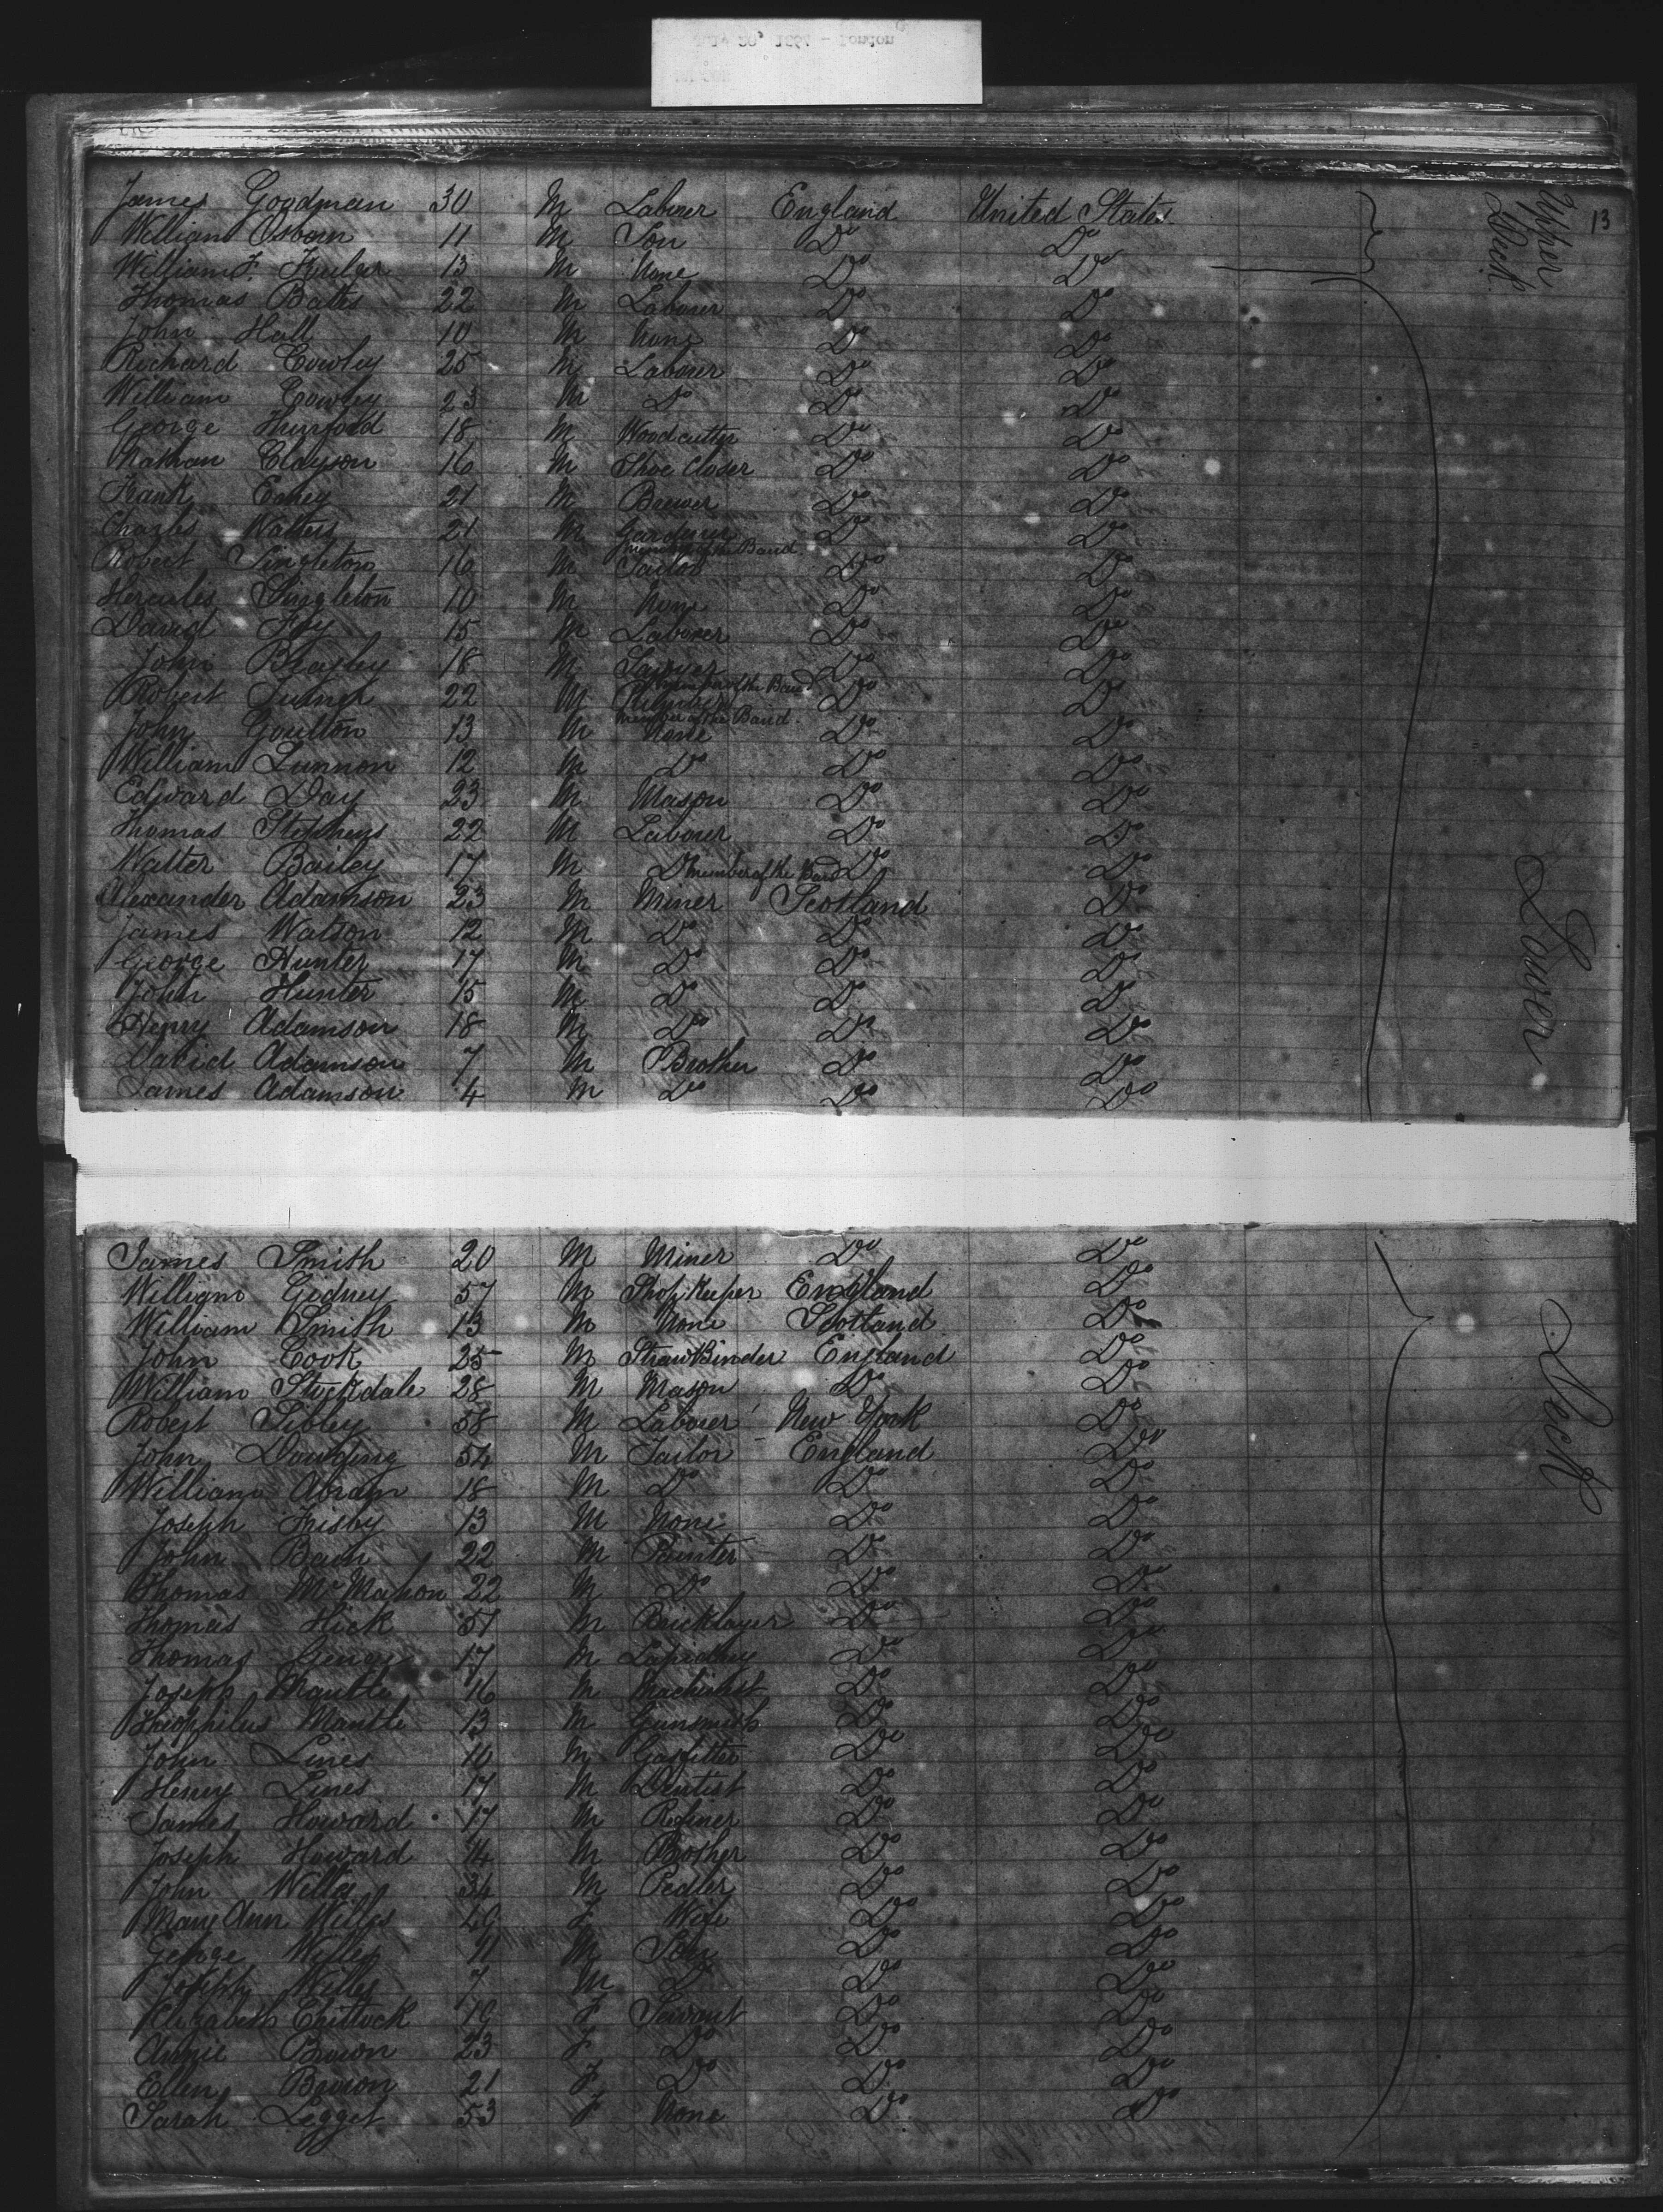 July 20, 186 - London
13
Upper Deck
James Goodman 30 M Laborer England United States
William Osborn 11 M Son Do Do
William F. 13 M None Do Do
Thomas Bates 22 M Laborer Do Do
John Hall 10 M None Do Do
Richard Cowley 25 M Laborer Do Do
William Cowley 23 M Do Do Do
George Hurford 18 M Woodcutter Do Do
Nathan Clayson 16 M Shoe Closer Do Do
Frank 21 M Brewer Do Do
Charles Walters 21 M Gardener Do Do
member of the Band
Robert Singleton 16 M Tailor Do Do
Hercules Singleton 10 M None Do Do
David Fry 15 M Laborer Do Do
John Bragley 18 M Sawyer Do Do
member of the Band
Robert Turner 22 M Do Do
member of the Band
John Goulton 13 M None Do Do
William Lunnon 12 M Do Do Do
Edward Day 23 M Mason Do Do
Thomas Stephens 22 M Laborer Do Do
Walter Bailey 17 M Do member of the Band Do Do
Lower
Alexander Adamson 23 M Miner Scotland Do
James Watson 12 M Do Do Do
George Hunter 17 M Do Do Do
John Hunter 15 M Do Do Do
Henry Adamson 18 M Do Do Do
David Adamson 7 M Brother Do Do
James Adamson 4 M Do Do Do
James Smith 20 M Miner Do Do
William Gidney 57 M Shop Keeper England Do
William Smith 13 M None Scotland Do
Deck
John Cook 25 M Straw Binder England Do
William Stockdale 28 M Mason Do Do
Robert Sibley 58 M Laborer New York Do
John Dowding 54 M Tailor England Do
William Abram 18 M Do Do Do
Joseph Frisby 13 M None Do Do
John Bain 22 M Painter Do Do
Thomas McMahon 22 M Do Do Do
Thomas Hick 51 M Bricklayer Do Do
Thomas 17 M Lapidary Do Do
Joseph Mantle 16 M Machinist Do Do
Theophilus Mantle 13 M Gunsmith Do Do
John Lines 10 M Gasfitter Do Do
Henry Lines 17 M Dentist Do Do
James Howard 17 M Refiner Do Do
Joseph Howard 14 M Brother Do Do
John Willes 34 M Pedler Do Do
Mary Ann Willes F Wife Do Do
George Willes 11 M Son Do Do
Joseph Willes 7 M Do Do Do
Elizabeth Chittock 19 F Servant Do Do
Annie Brown 23 F Do Do Do
Ellen Brown 21 F Do Do Do
Sarah Legget 53 F None Do Do